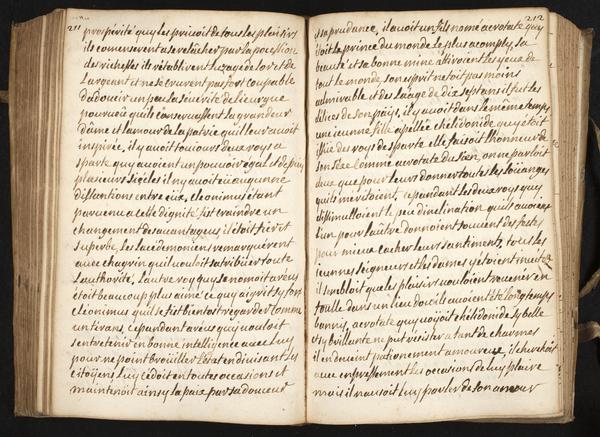 211
prosperité quy les privoit de tous les plaisirs
ils comenserent a se relâcher par la possession
des richesses ils rétablirent l'uzage de lor et de
Largeant et ne se crurent pas fort coupable
dadoucir un peu la severité de licurgue
pourvû qu'ils conservassent la grandeur
dame et lamour de la patrie quil leur avoit
inspirée, il y avoit toujours deux roys a
sparte quy avoient un pouvoir egal et depuis
plusieurs siécles il ny avoit eü aucunne
dissantions entre eux, cleonimus étant
parvenu a cette dignité fist craindre un
changement desavantageus il étoit fier et
superbe, les lacédemoniens remarquérent
avec chagrin quil vouloit sattribuer toute
Lauthorité, Lautre roy quy se nomoit aréus
étoit beaucoup plus aimé ce quy aigrit sy fort
cleonimus quil se fist bientost regarder comme
un tirans, cependant aréus quy vouloit
sentretenir en bonne intelligence avec luy
pour ne point brouiller létat en divisant les
citoÿens, luy cédoit en toutes occasions et
maintenoit ainsy la paix par sa douceur
212
et sa prudance, il avoit un fils nomé acrotate quy
étoit le prince du monde le plus acomply, sa
beauté et sa bonne mine attiroient les yeux de
tout le monde son esprit nétoit pas moins
admirable et des laage de dix sept ans il fut les
délices de son païs, il y avoit dans le même temps
une jeunne fille apellée chélidonide quy étoit
issüe des roys de sparte elle faisoit lhonneur de
son séxe comme acrotate du sien, on ne parloit
deux que pour leurs donner toutes les loüanges
quils méritoient, cependant les deux roys quy
dissimulloient le peu dinclination quils avoient
lun pour lautre donnoient souvent des festes
pour mieux cacher leurs santiments, toutes les
jeunnes seigneurs et les dames y étoient invités
il sembloit que les plaisirs vouloient revenir en
foulle dans un lieu dou ils avoient été longtemps
bannis, acrotate quy voÿoit chélidonide sy belle
et sy brillante ne put résister a tant de charmes
il en devint pationement amoureux, il cherchoit
avec enpressement les occasions de luy plaire
mais il nausoit luy parler de son amour